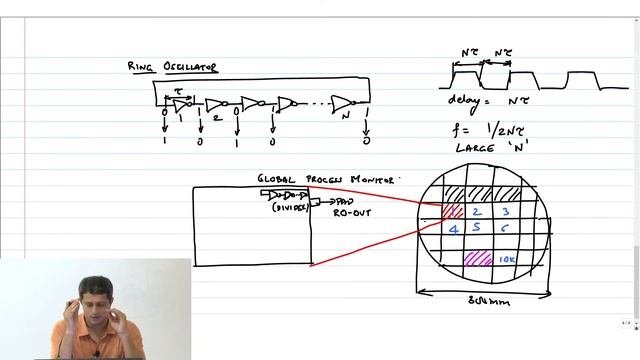 RING OSCILLATOR
τ
0 1 0 1 0 1 0
1 2 N
1 0 1 0 0
Nτ Nτ
delay = Nτ
f = 1/2Nτ
LARGE 'N'
GLOBAL PROCESS MONITOR
(DIVIDER)
PAD
RO-OUT
1 2 3
4 5 6
10K
300mm